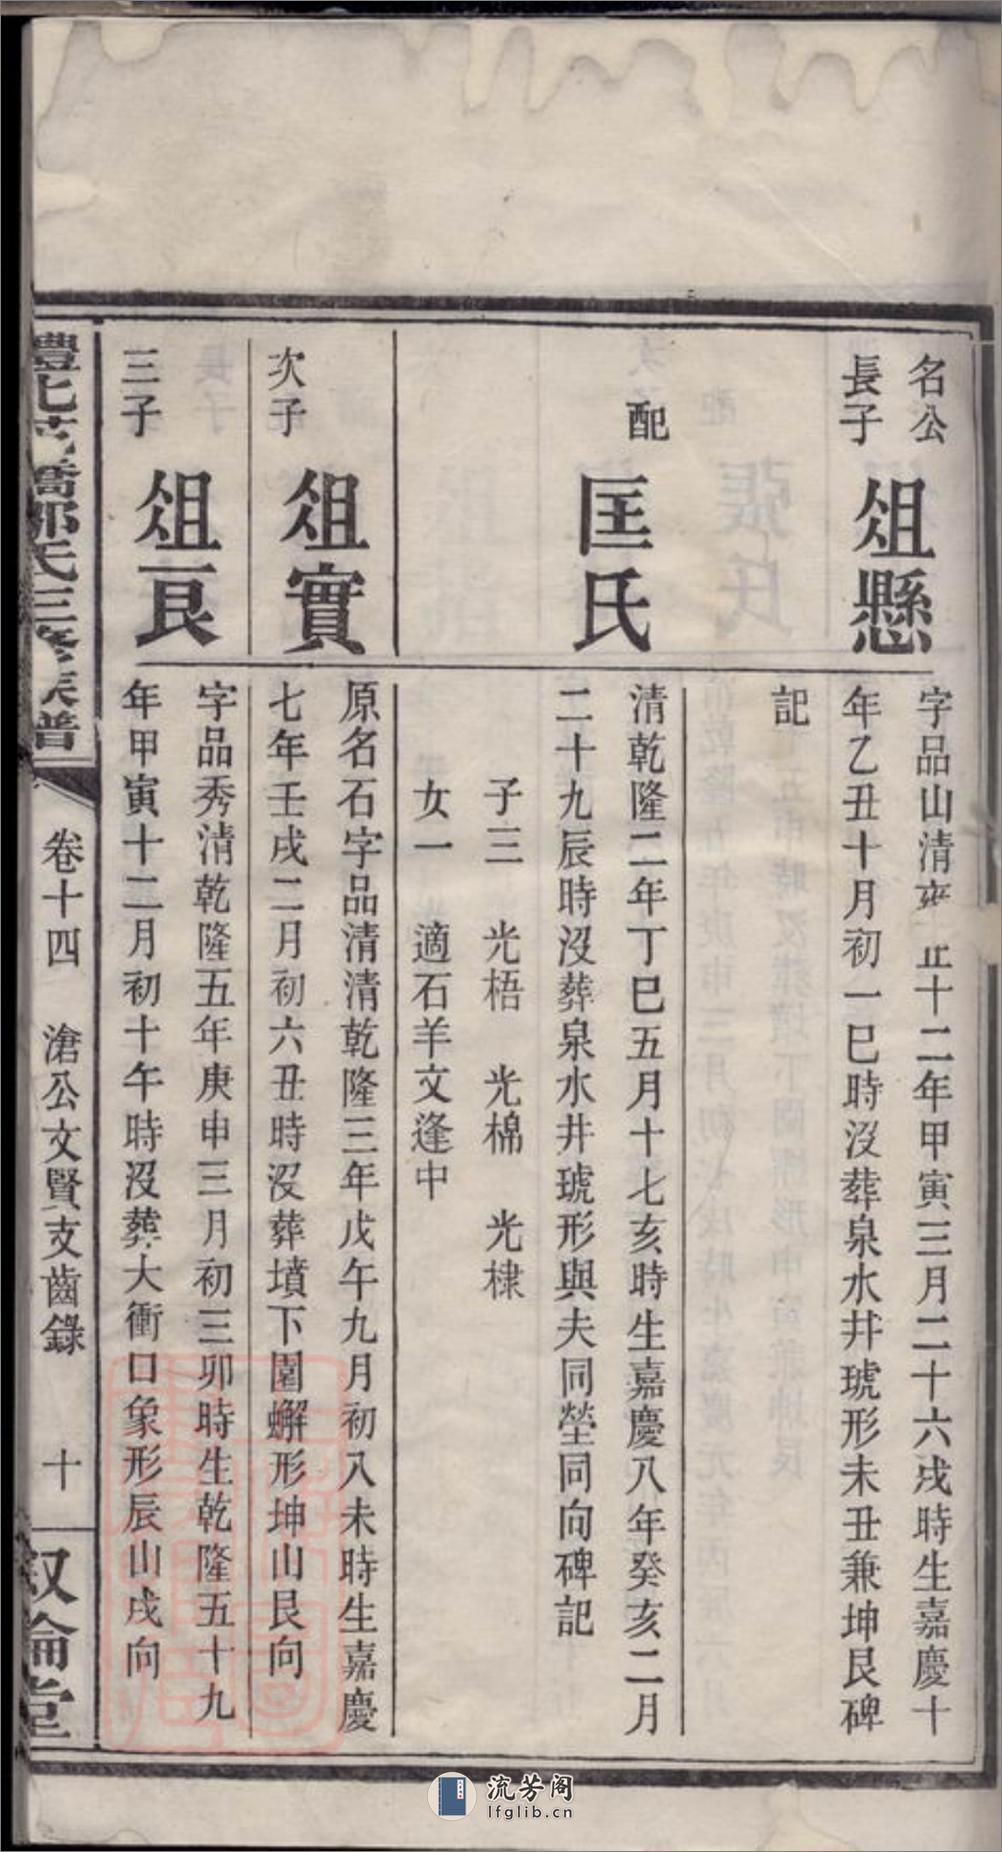 名公
長子
俎懸
字品山清雍正十二年甲寅三月二十六戌時生嘉慶十
年乙丑十月初一巳時沒葬泉水井琥形未丑兼坤艮碑
記
配
匡氏
清乾隆二年丁巳五月十七亥時生嘉慶八年癸亥二月
二十九辰時沒葬泉水井琥形與夫同塋同向碑記
子三 光梧 光棉 光棣
女一 適石羊文逢中
次子
俎實
原名石字品清清乾隆三年戊午九月初八未時生嘉慶
七年壬戌二月初六丑時沒葬墳下園蠏形坤山艮向
三子
俎艮
字品秀清乾隆五年庚申三月初三卯時生乾隆五十九
年甲寅十二月初十午時沒葬大衝口象形辰山戌向
氏三修族譜
卷十四 滄公文賢支齒錄 十
敘倫堂
流芳阁
lfglib.cn